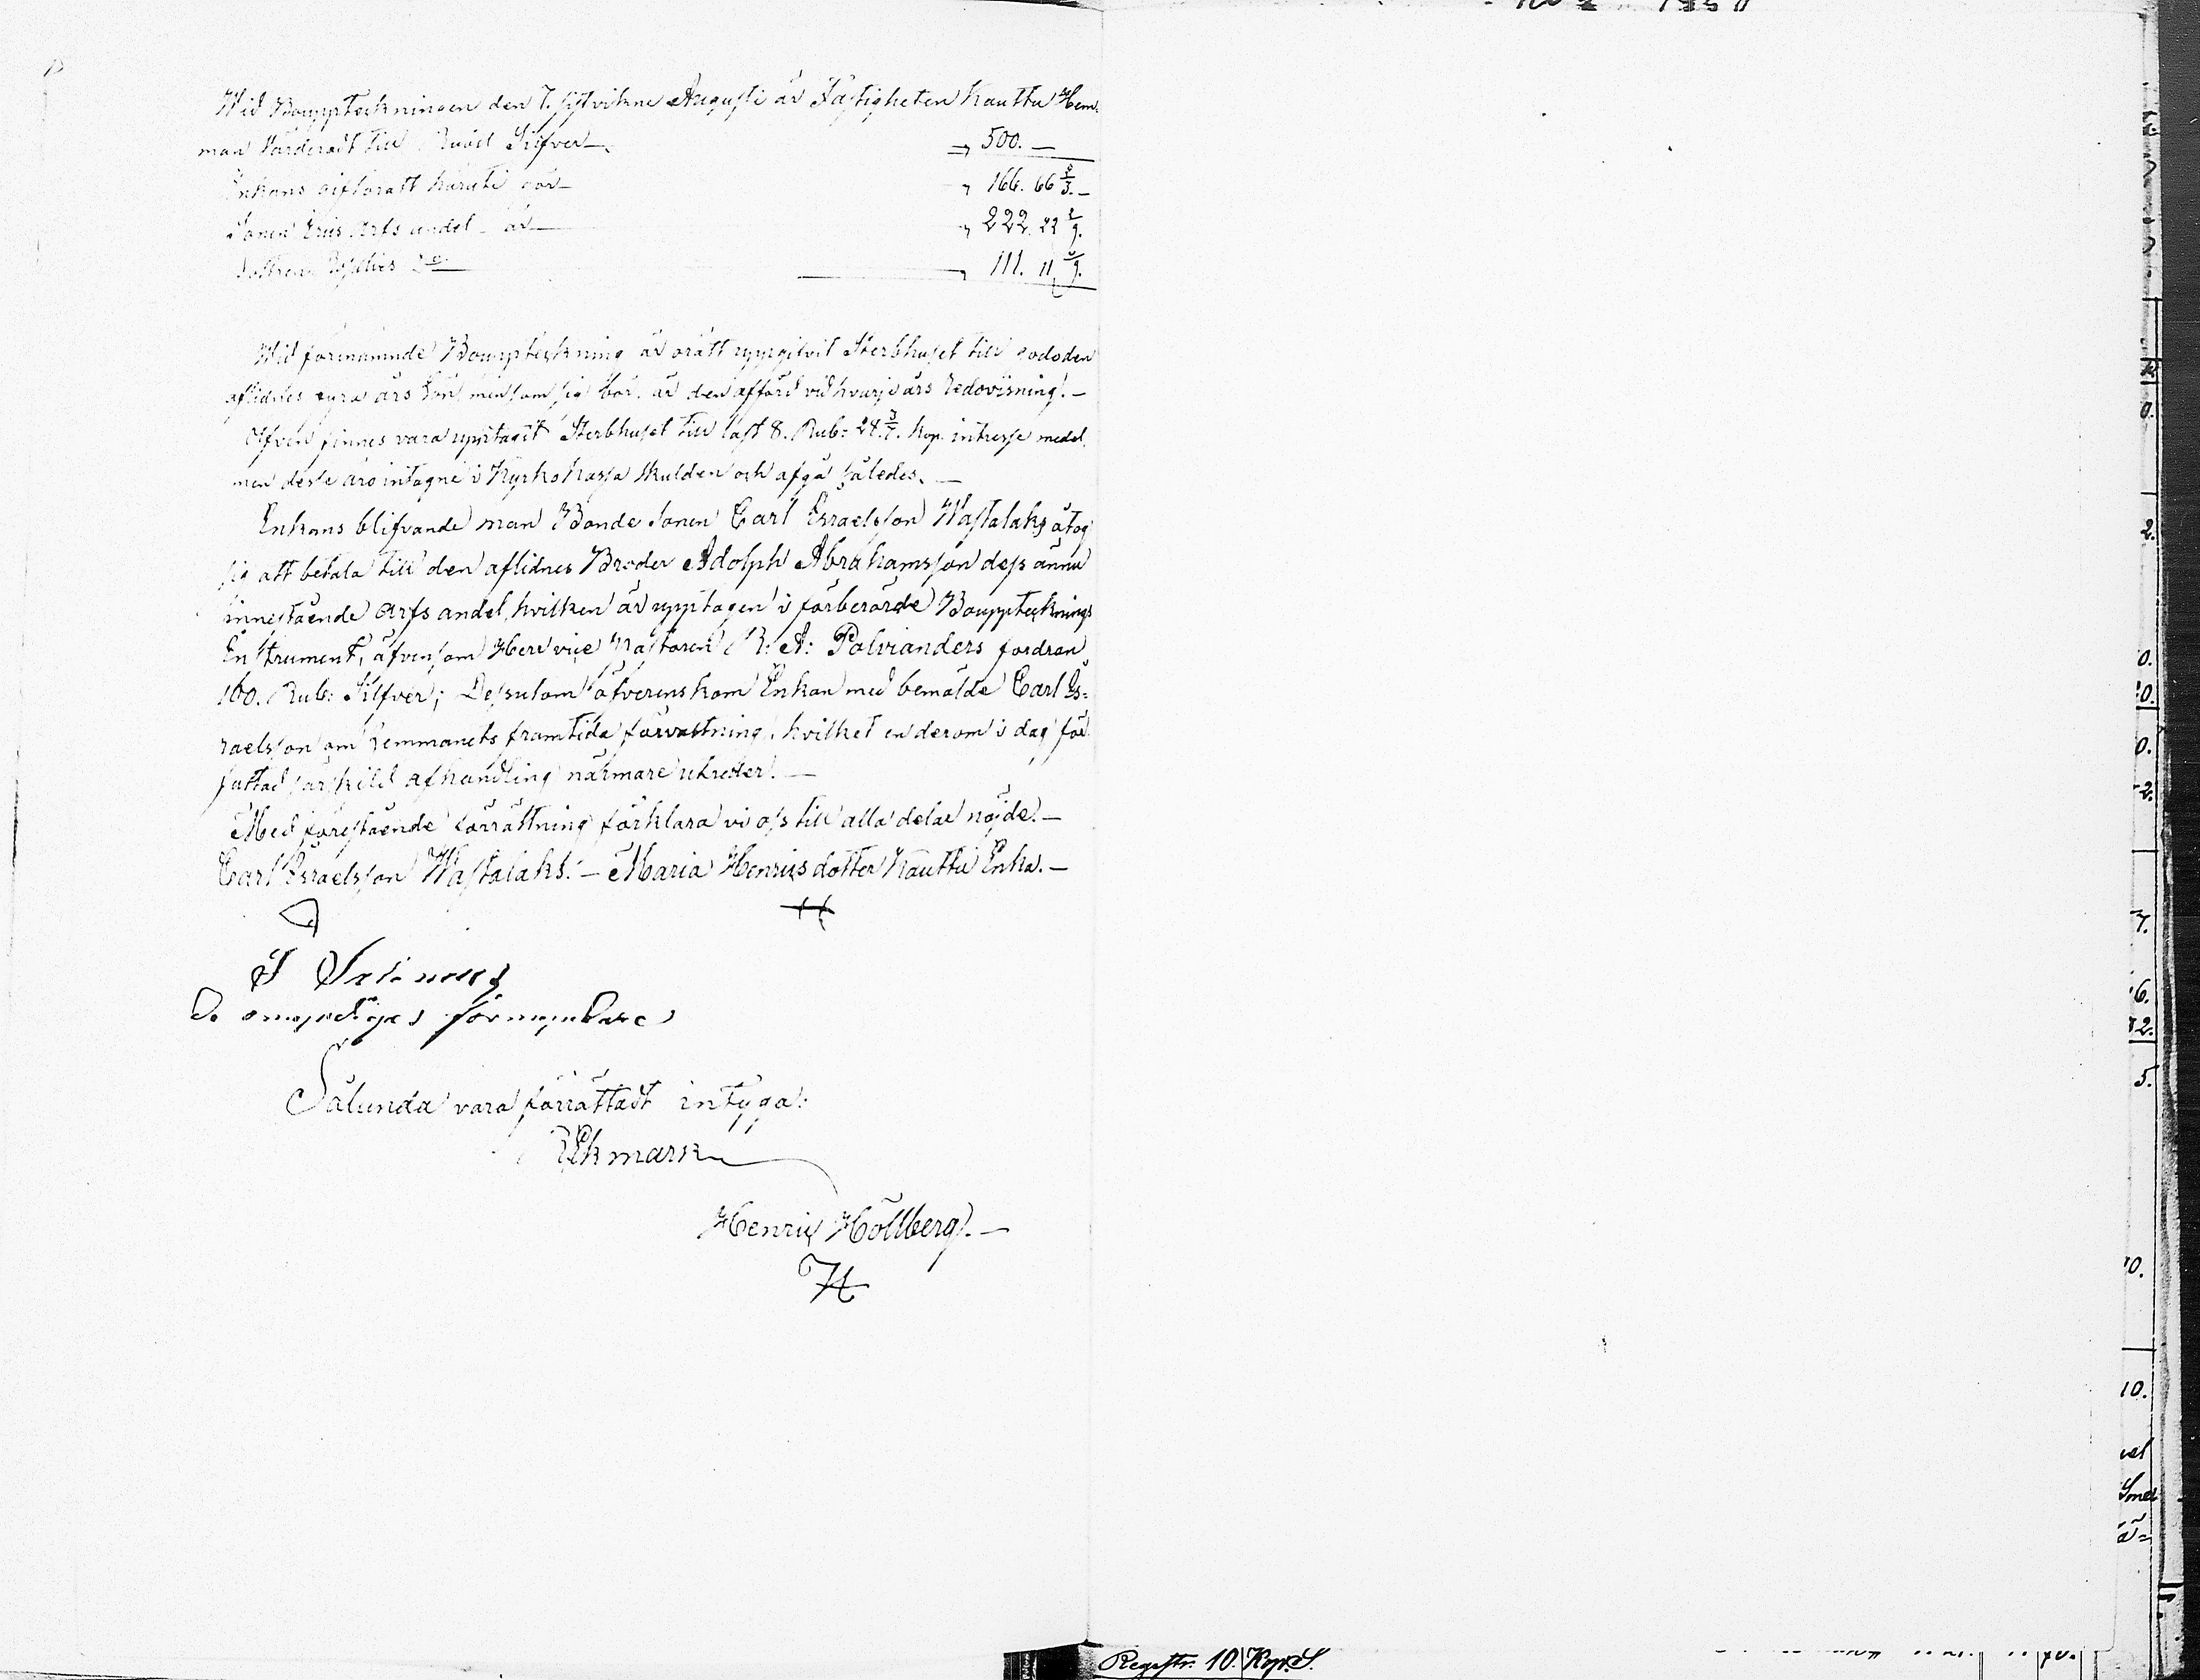 Wid Bouppteckningen den 7. sistvikne Augusti är Fastigheten Kauttu Hem-
man Värderadt till Rubel Silfver — " 500. —
Enkans giftorätt häruti gör — " 166. 66 2/3. —
Sonen Erics Arfs andel är — " 222. 22 2/9.
Dottren d:o — " 111. 11 1/9.
Wid förenämnde Bouppteckning är orätt uppgifvit Sterbhuset till godo den
aflidnes fyra års lön, men som sig bör, är den afförd vid hvarje års Redovisning. —
Äfven finnes vara upptagit Sterbhuset till last 8. Rub: 24. 3/7. kop. intresse medel,
men desse äro intagne i Kyrko Kassa skulden och afgå således. —
Enkans blifvande man Bonde Sonen Carl Israelsson Wastalaks åtog
sig att betala till den aflidnes Broder Adolph Abrahamsson dess ännu
innestående arfs andel, hvilken är upptagen i förberörde Bouppteknings
Enstrument, äfvensom Herr vice Pastoren R: A: Polvianders fordran
160. Rub: Silfver; Dessutom öfverenskom Enkan med bemälde Carl Is-
raelsson om hemmanets framtida förvaltning, hvilket en derom i dag för
fattad särskild afhandling närmare utreder. —
Med förestående förrättning förklara vi oss till alla delar nöjde. —
Carl Israelsson Wastalaks. — Maria Henricsdotter Kauttu Enka. —
De omyndigas förmyndare
Sålunda vara förrättadt intyga:
Ekmark
Henric Hollberg. —
Registr. 10. Kop. S.